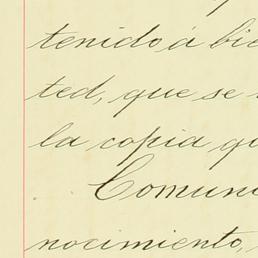 tenido á bie
ted, que se
la copia qu
Comuni
nocimiento,